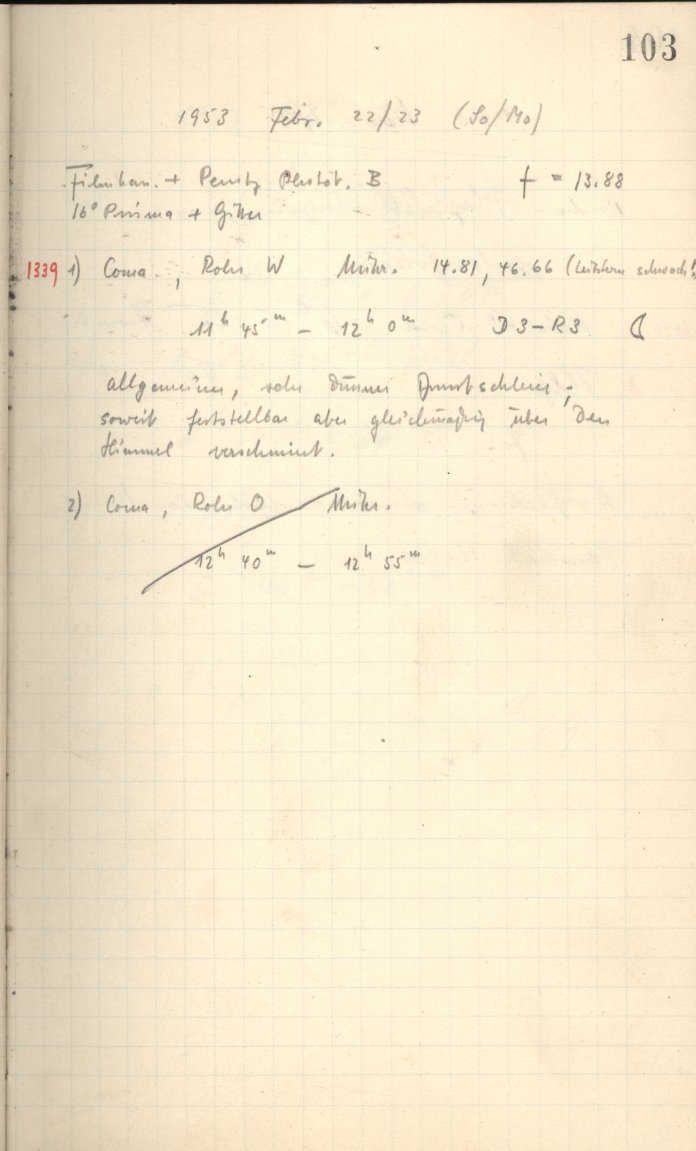 103
1953 Febr. 22/23 (So/Mo)
Filmkan. + Perutz Photot. B f = 13.88
16° Prisma + Gitter
1339 1) Coma, Rohr W Mikr. 14.81, 46.66 (Leitstern schwach!)
11h 45m – 12h 0m D3–R3 ☾
allgemeiner, sehr dünner Dunstschleier;
soweit feststellbar aber gleichmäßig über den
Himmel verschmiert.
2) Coma, Rohr O Mikr.
12h 40m – 12h 55m